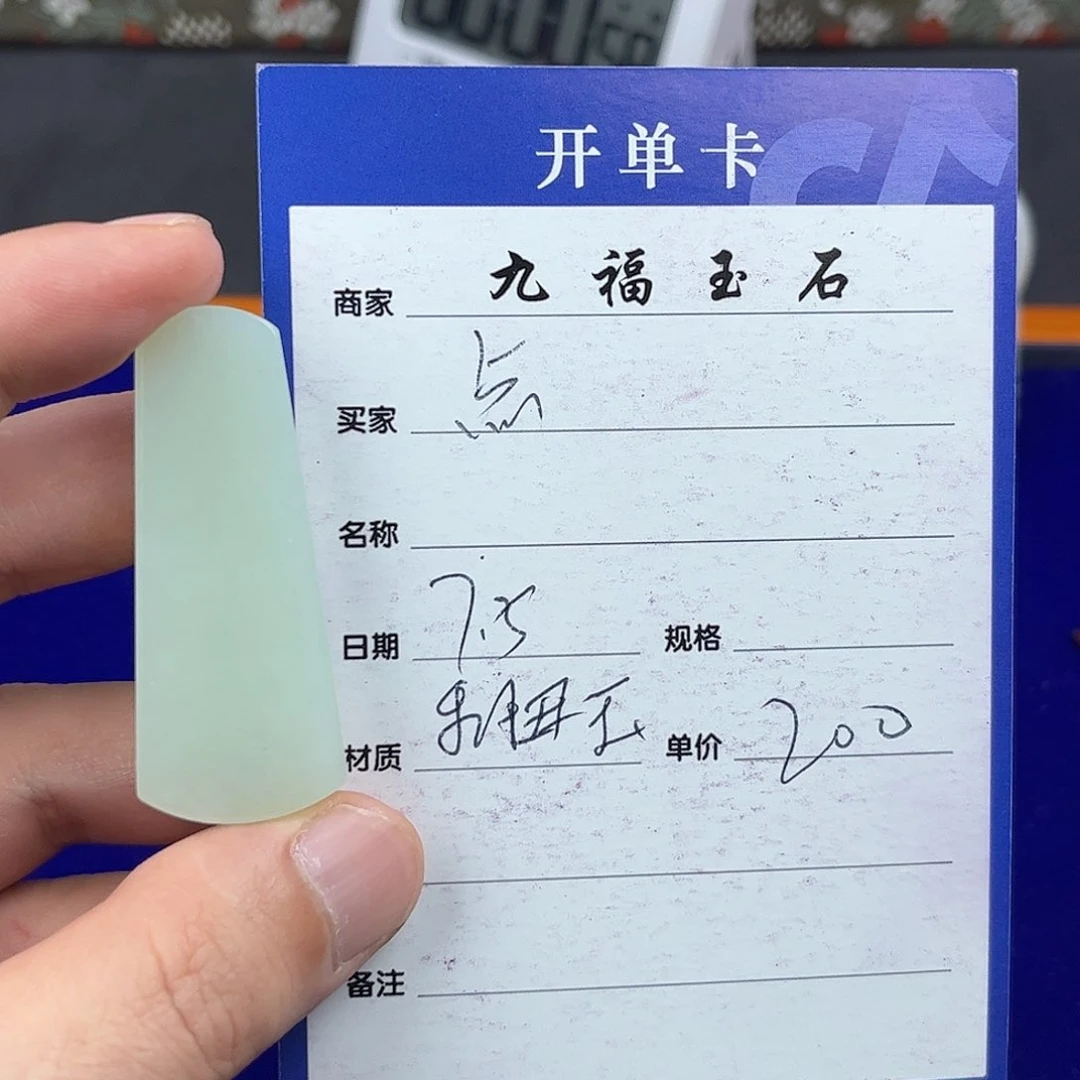 开单卡
商家 九福玉石
买家 点
名称
日期 7.5 规格
材质 和田玉 单价 200
备注